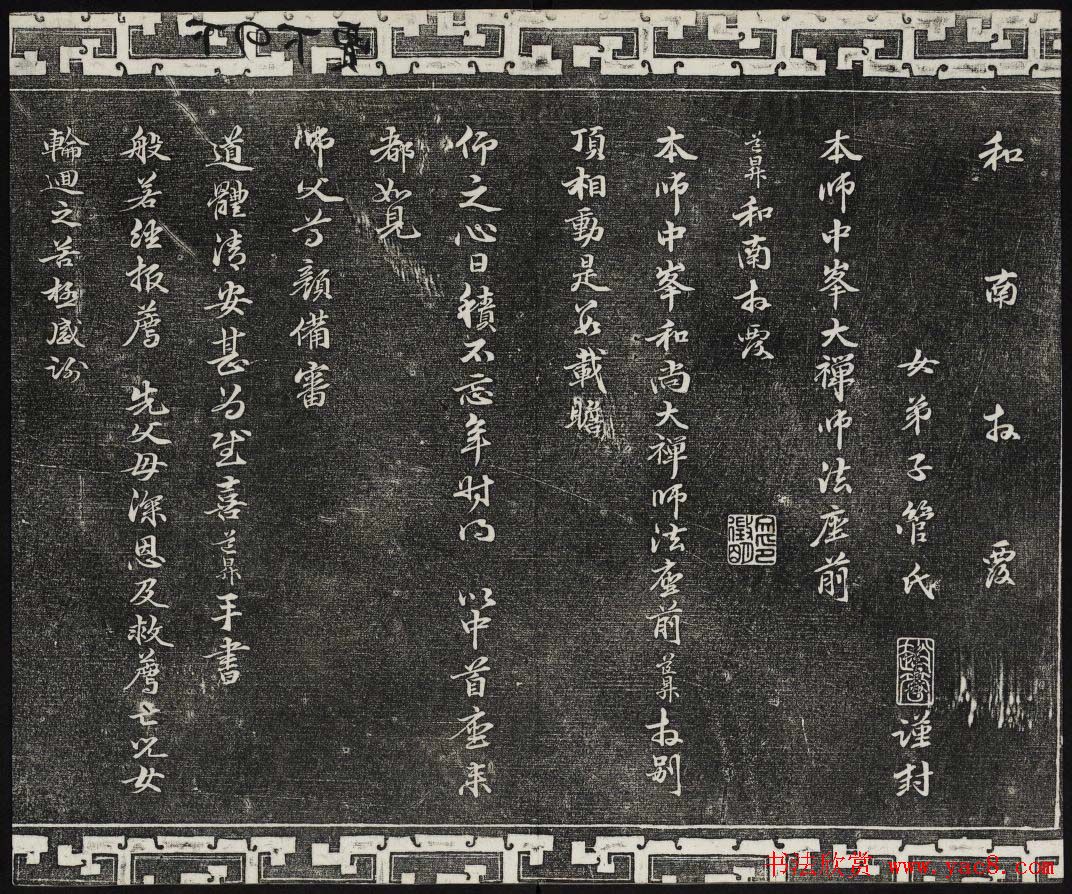 和南拜覆
女弟子管氏謹封
本師中峯大禪師法座前
道昇和南拜覆
本師中峯和尚大禪師法座前道昇拜別
頂相動是數載瞻
仰之心日積不忘年时得 以中首座来
都如見
師父尊顏備審
道體清安甚为慰喜道昇手書
般若经报薦 先父母深恩及救薦亡兒女
輪迴之苦極感谢
书法欣赏 www.yac8.com